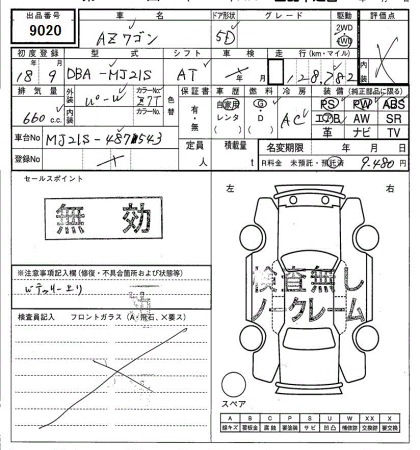 出品番号 車名 ドア形状 グレード 駆動 評価点
9020 AZワゴン 5D 2WD 4WD
初度登録 型式 シフト 車検 走行(km・マイル) 内装
18年9月 DBA-MJ21S AT 年 月 128,782
排気量 外装 カラーNo. 色替 保証書 車歴 燃料 冷房 装備(純正部品に限る)
660c.c. Z7T 有・無 自家用 レンタ G・D AC PS PW ABS
内装 カラーNo. エアB AW SR
革 ナビ TV
車台No MJ21S-487543 定員 積載量 名変期限 年 月 日
登録No 人 t R料金 未預託・預託済 9,480円
セールスポイント 左 右
無効
※注意事項記入欄(修復・不具合箇所および状態等)
検査員記入 フロントガラス(A・飛石、X要ス)
検査無し
ノークレーム
スペア
A B C P S U W X XX
線キズ 板金 腐蝕 要塗装 サビ 凹凸 補修跡 交換跡 要交換